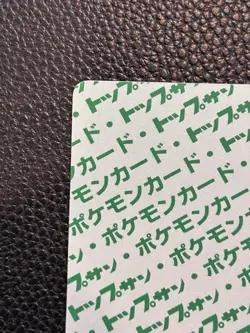 トップサン
カード・トップサン
モンカード・トップ
ポケモンカード・
・ポケモンカード
サン・ポケモンカ
トップサン・ポケモ
トップサン・ポ
トップサン